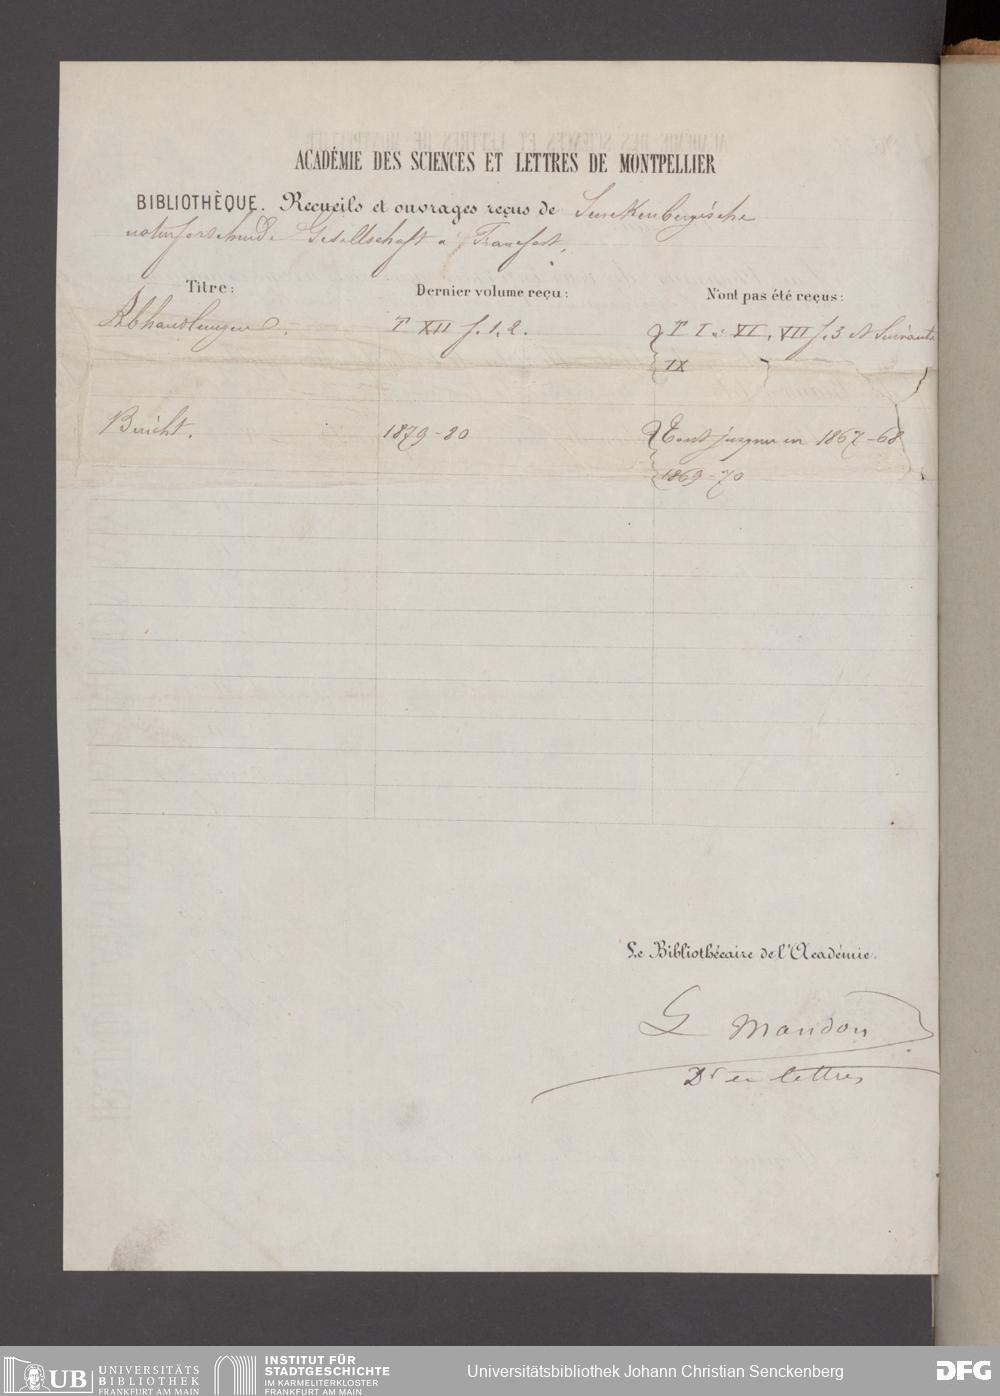 ACADÉMIE DES SCIENCES ET LETTRES DE MONTPELLIER
BIBLIOTHÈQUE. Recueils et ouvrages reçus de Senckenbergische
naturforschende Gesellschaft a Francfort.
Titre: Dernier volume reçu: N'ont pas été reçus:
Abhandlungen. T XII f. 1. 2. T I à VI, VII f. 3 et suivants
IX
Bericht. 1879-80 Tout jusque en 1867-68
1869-70
Le Bibliothécaire de l'Académie.
G Mandon
Dr en lettres
UB UNIVERSITÄTS
BIBLIOTHEK
FRANKFURT AM MAIN
INSTITUT FÜR
STADTGESCHICHTE
IM KARMELITERKLOSTER
FRANKFURT AM MAIN
Universitätsbibliothek Johann Christian Senckenberg
DFG